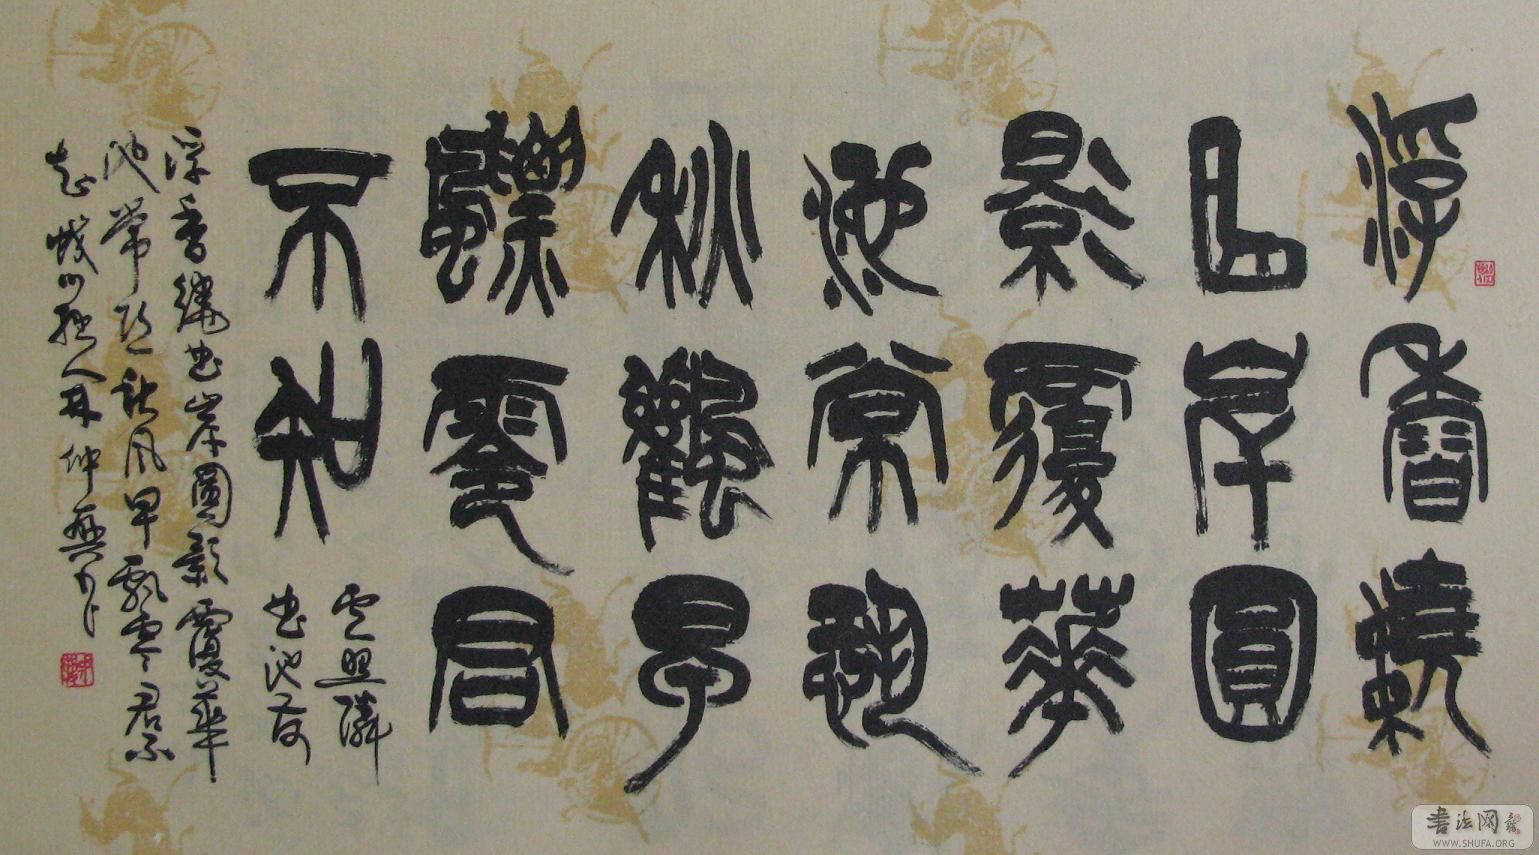 浮香繞
曲岸圓
影覆華
池常恐
秋風早
飄零君
不知
盧照隣
曲池荷
浮香繞曲岸圓影覆華
池常恐秋風早飄零君不
知 人林仲興書
書法网
WWW.SHUFA.ORG